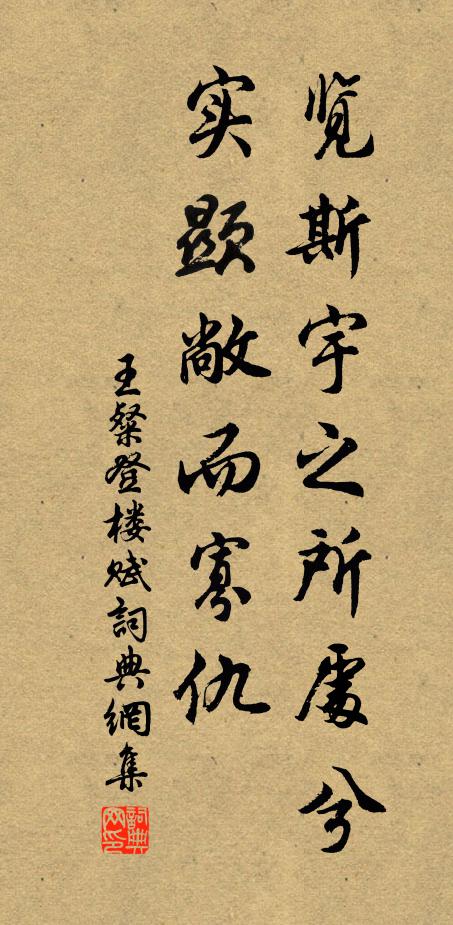 览斯宇之所處兮
实顯敞而寡仇
王粲登楼赋詞典網集
詞典
网印